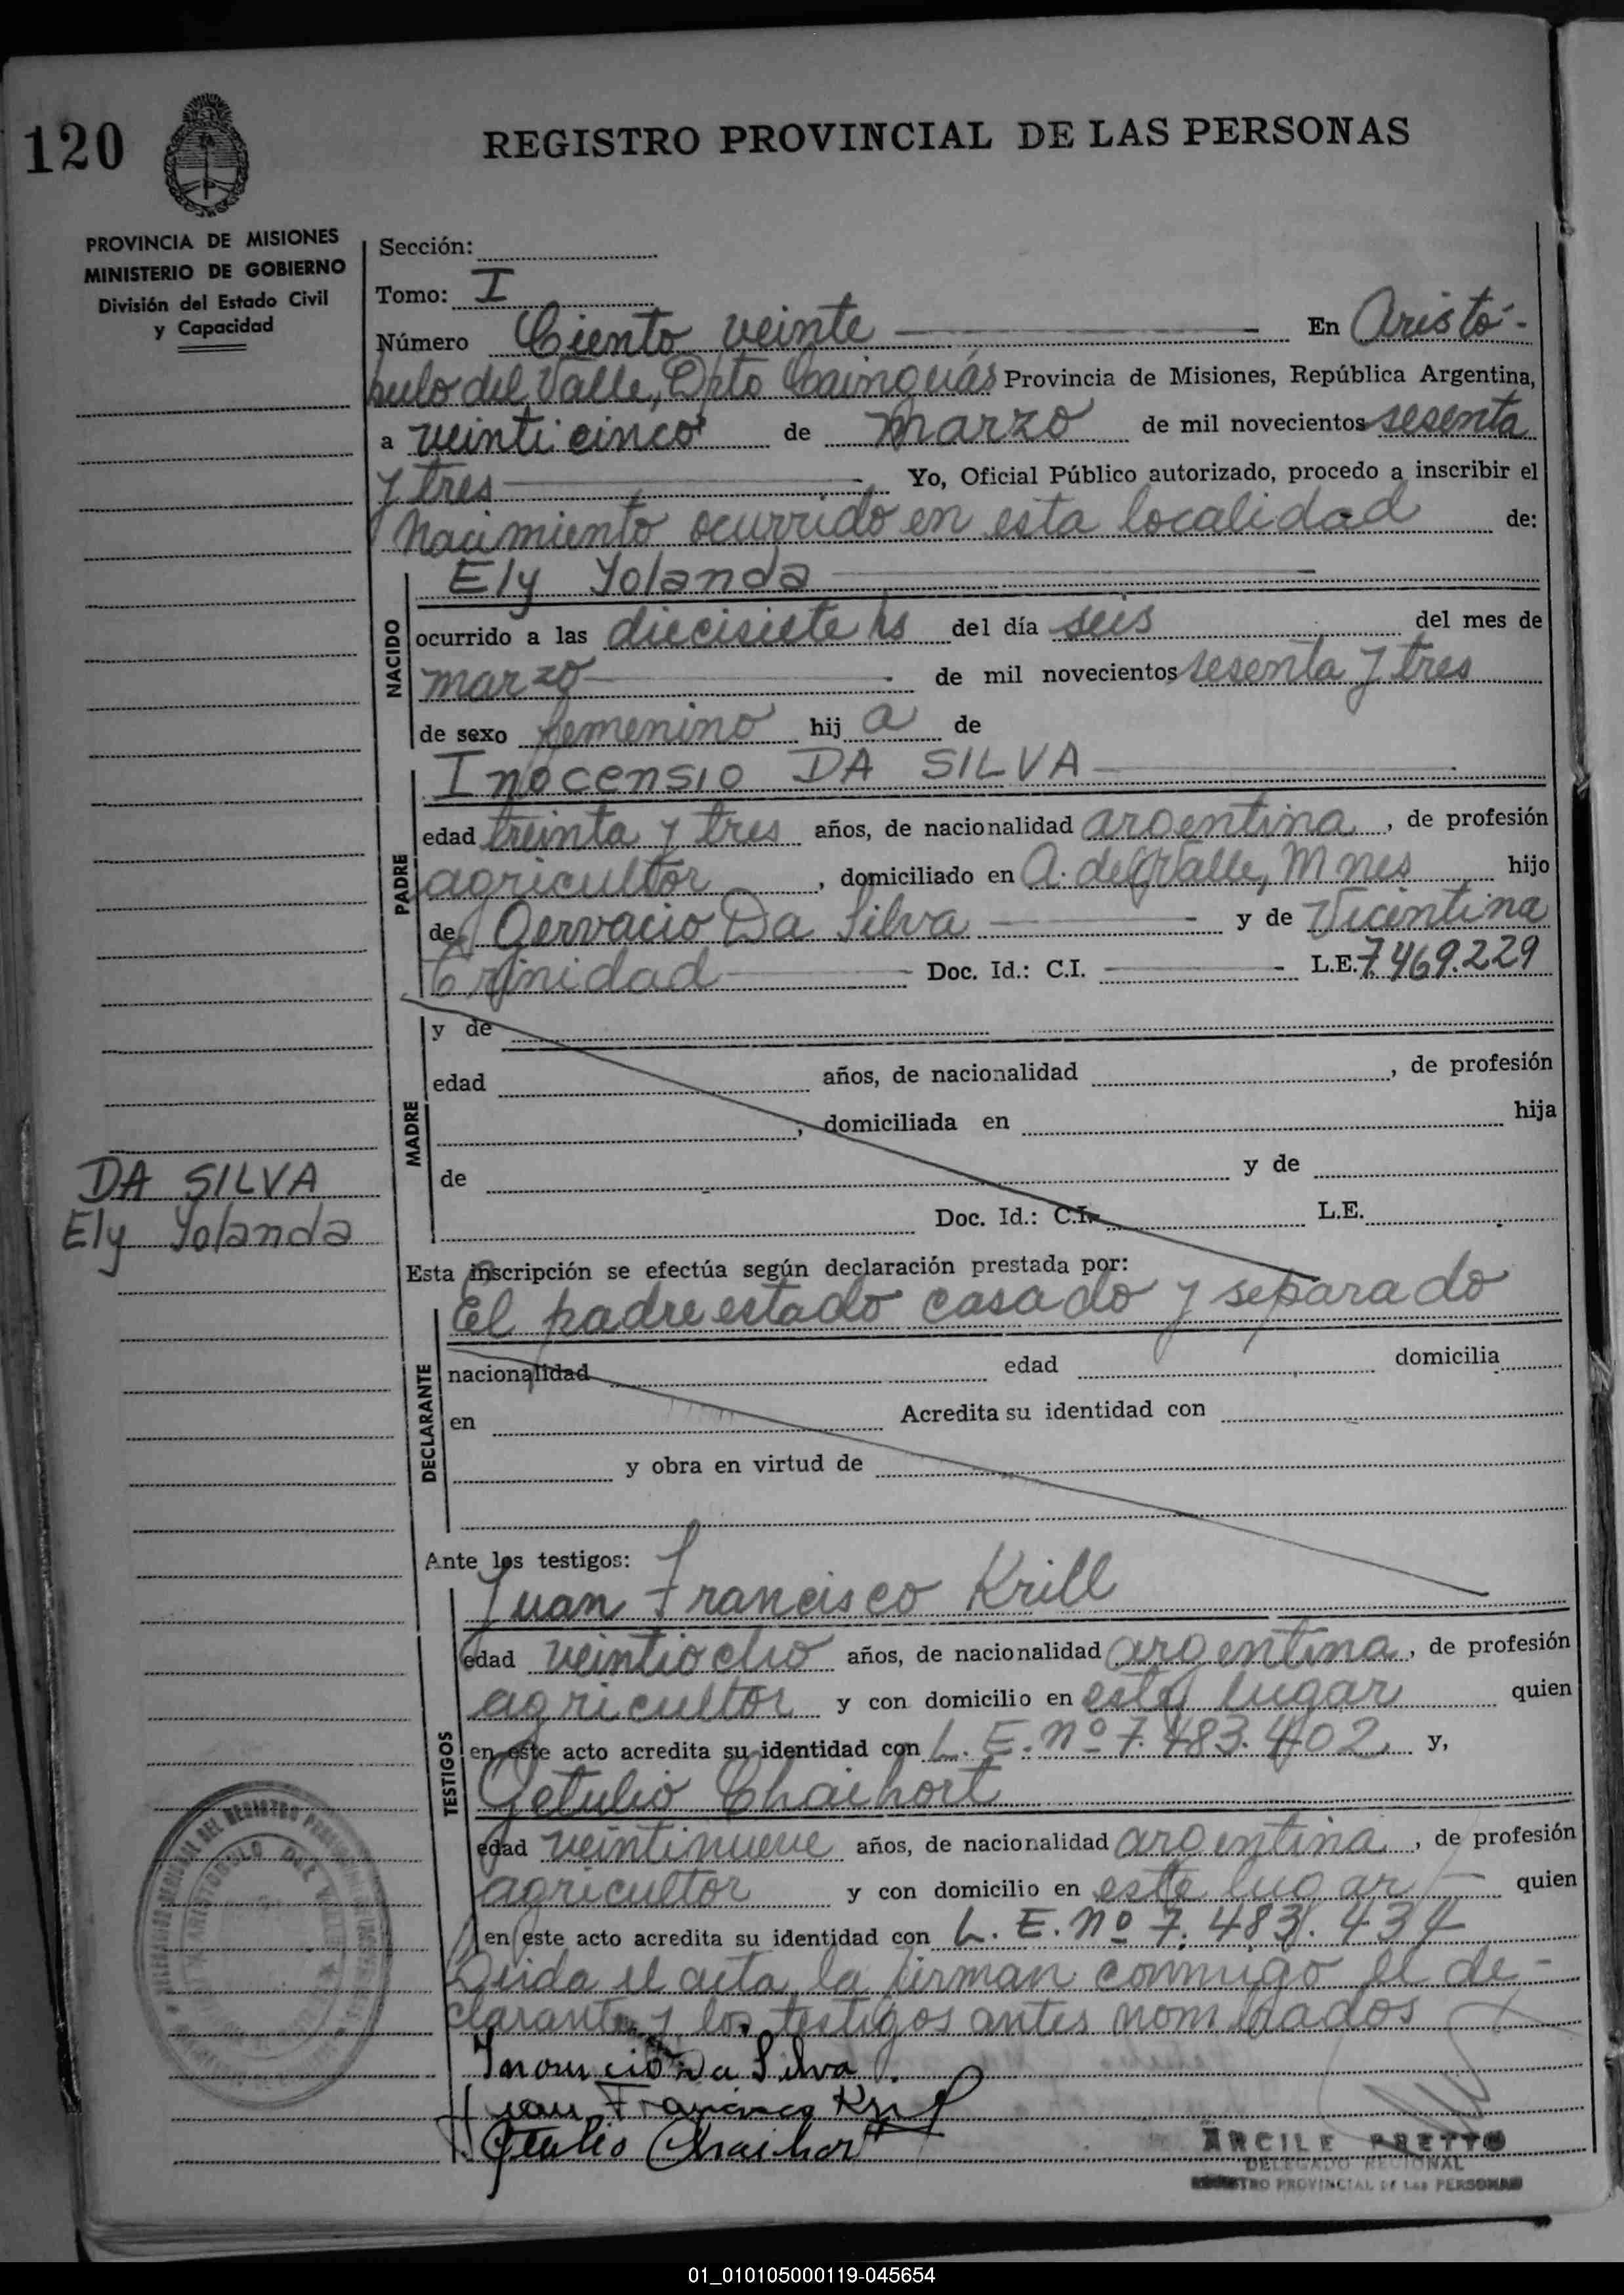 120
REGISTRO PROVINCIAL DE LAS PERSONAS
PROVINCIA DE MISIONES
MINISTERIO DE GOBIERNO
División del Estado Civil
y Capacidad
Sección:
Tomo: I
Número Ciento veinte En Aristó-
bulo del Valle, Dpto Cainguás Provincia de Misiones, República Argentina,
a veinticinco de marzo de mil novecientos sesenta
y tres Yo, Oficial Público autorizado, procedo a inscribir el
nacimiento ocurrido en esta localidad de:
NACIDO
Ely Yolanda
ocurrido a las diecisiete hs del día seis del mes de
marzo de mil novecientos sesenta y tres
de sexo femenino hij a de
PADRE
Inocensio DA SILVA
edad treinta y tres años, de nacionalidad argentina, de profesión
agricultor, domiciliado en A. del Valle, Mnes hijo
de Gervacio Da Silva y de Vicentina
Trinidad Doc. Id.: C.I. L.E. 7.469.229
MADRE
y de
edad años, de nacionalidad , de profesión
, domiciliada en hija
de y de
Doc. Id.: C.I. L.E.
DA SILVA
Ely Yolanda
Esta inscripción se efectúa según declaración prestada por:
DECLARANTE
El padre estado casado y separado
nacionalidad edad domicilia
en Acredita su identidad con
y obra en virtud de
Ante los testigos:
TESTIGOS
Juan Francisco Krill
edad veintiocho años, de nacionalidad argentina, de profesión
agricultor y con domicilio en este lugar quien
en este acto acredita su identidad con L. E. nº 7.483.402 y,
Getulio Chaihort
edad veintinueve años, de nacionalidad argentina, de profesión
agricultor y con domicilio en este lugar quien
en este acto acredita su identidad con L. E. nº 7.483.434
Leida el acta la firman conmigo el de-
clarante y los testigos antes nombrados
Da Silva
Juan Francisco Krill
Getulio Chaihort
ARCILE PRETTO
DELEGADO REGIONAL
REGISTRO PROVINCIAL DE LAS PERSONAS
01_010105000119-045654